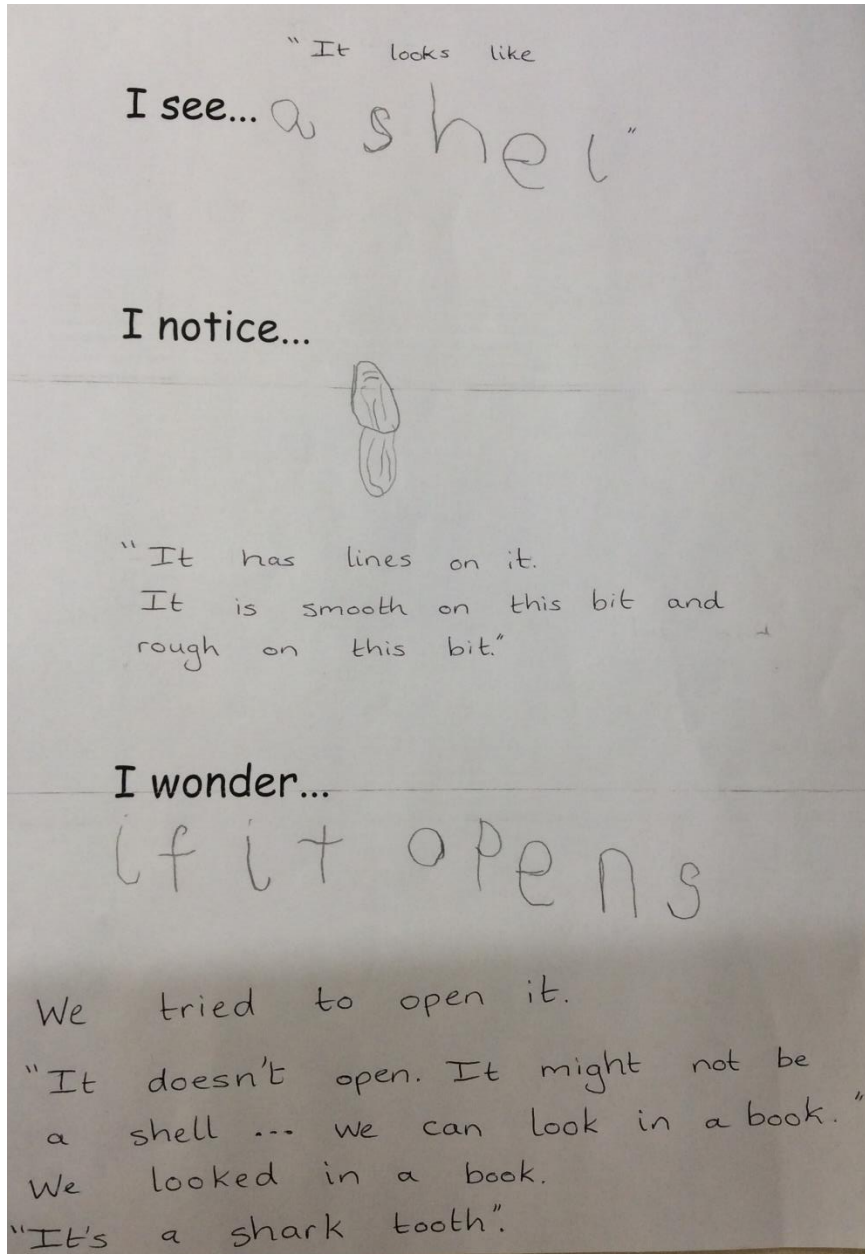 "It looks like
I see... a shel"
I notice...
"It has lines on it.
It is smooth on this bit and
rough on this bit."
I wonder...
if it opens
We tried to open it.
"It doesn't open. It might not be
a shell ... we can look in a book."
We looked in a book.
"It's a shark tooth".